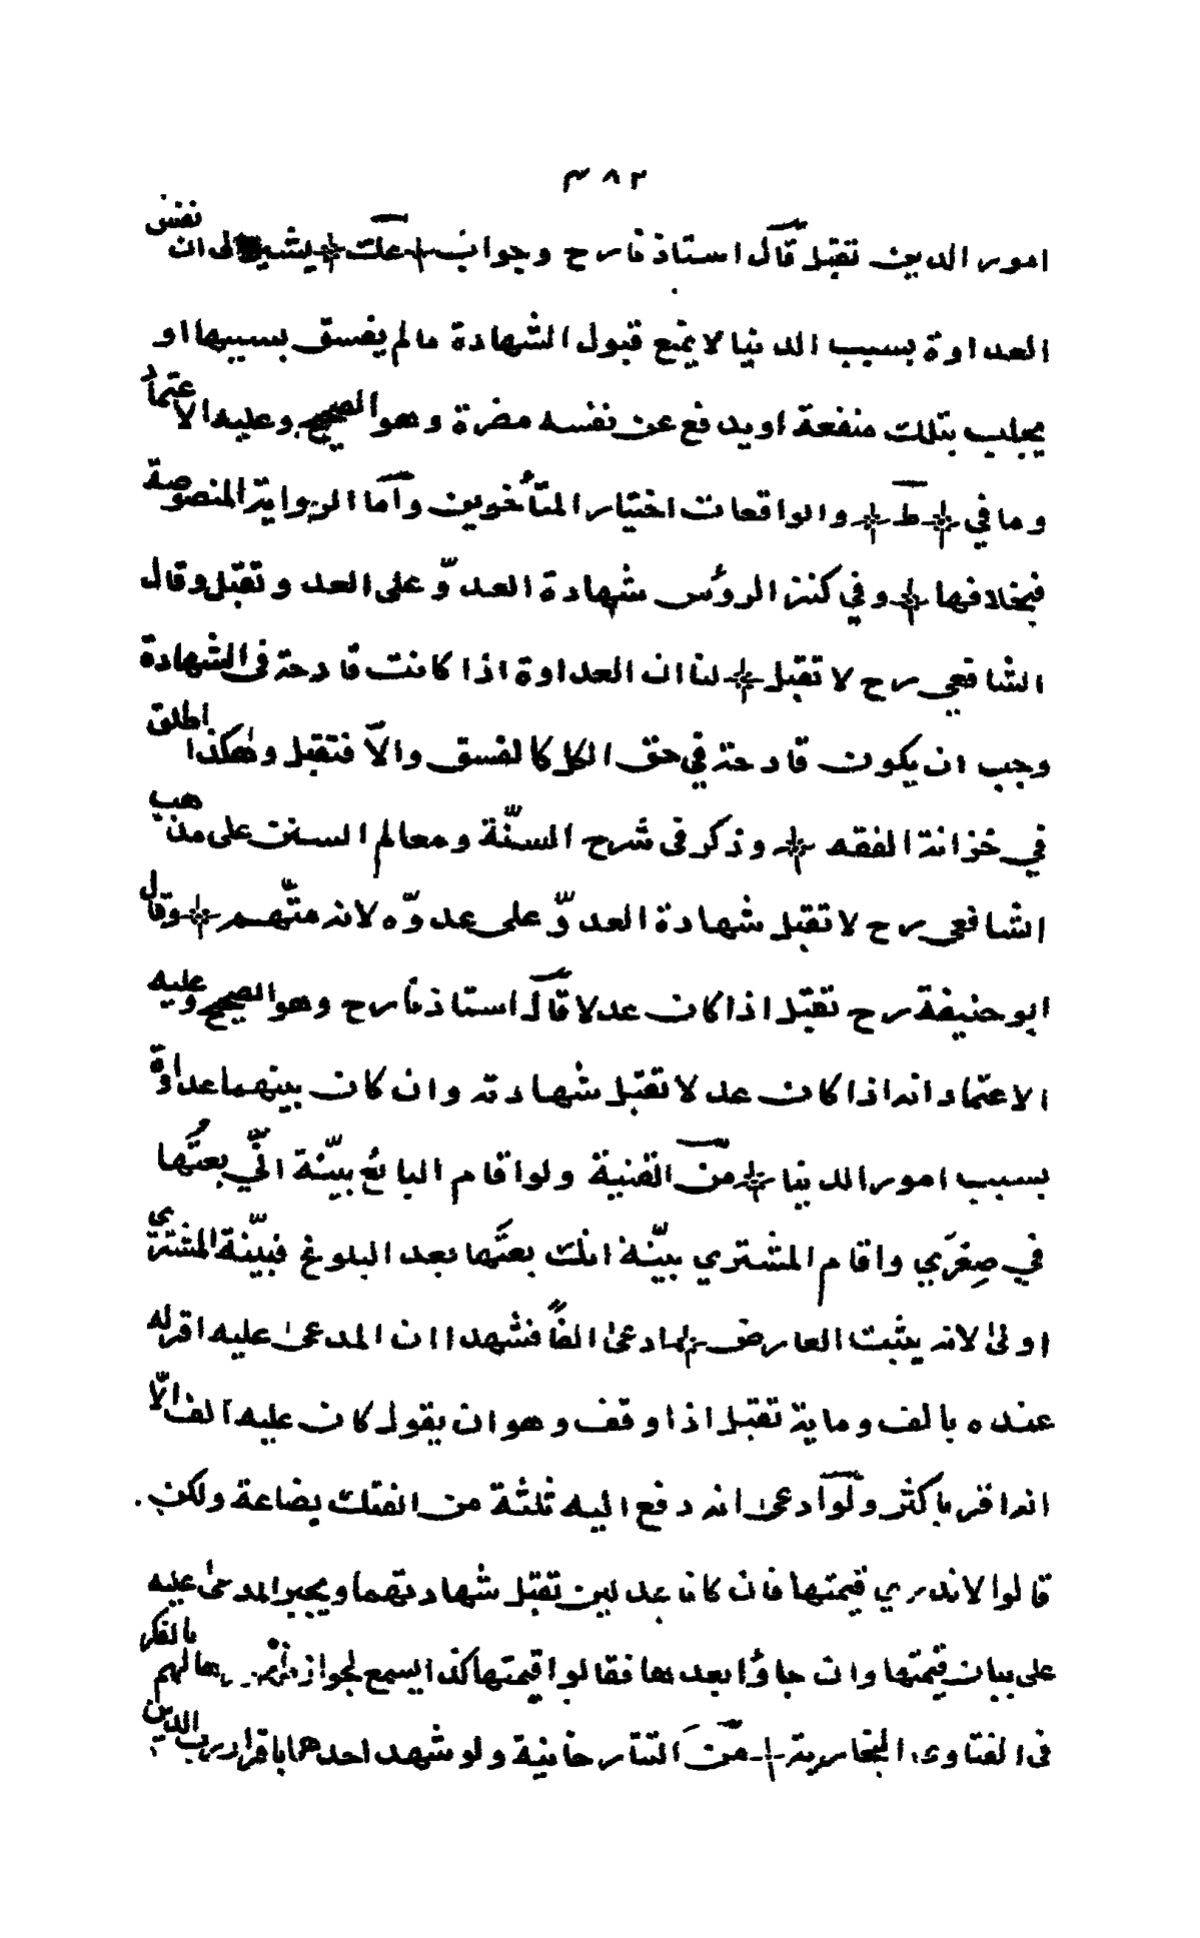 ٤٨٢
امور الدين تقبل قال استاذنا رح وجواب عك يشير الى ان نفس
العداوة بسبب الدنيا لا يمنع قبول الشهادة ما لم يفسق بسببها او
يجلب بتلك منفعة او يدفع عن نفسه مضرة وهو الصحيح وعليه الاعتماد
وما في ط والواقعات اختيار المتأخرين واما الرواية المنصوصة
فبخلافها وفي كنز الرؤس شهادة العدوّ على العدو تقبل وقال
الشافعي رح لا تقبل لنا ان العداوة اذا كانت قادحة فى الشهادة
وجب ان يكون قادحة في حق الكل كالفسق والّا فتقبل وهكذا اطلق
في خزانة الفقه وذكر فى شرح السنّة ومعالم السنن على مذهب
الشافعي رح لا تقبل شهادة العدوّ على عدوّه لانه متّهم وقال
ابو حنيفة رح تقبل اذا كان عدلا قال استاذنا رح وهو الصحيح وعليه
الاعتماد انه اذا كان عدلا تقبل شهادته وان كان بينهما عداوة
بسبب امور الدنيا من القنية ولو اقام البائع بيّنة انّي بعتُها
في صِغَرِي واقام المشتري بيّنة انك بعتَها بعد البلوغ فبيّنة المشتري
اولىٰ لانه يثبت العارض ادعىٰ الفًا فشهدا ان المدعىٰ عليه اقر له
عنده بالف وماية تقبل اذا وقف وهو ان يقول كان عليه الف الّا
انه اقر باكثر ولو ادعىٰ انه دفع اليه ثلثة من الفتك بضاعة ولكن
قالوا لا ندري قيمتها فان كانا عدلين تقبل شهادتهما ويجبر المدعىٰ عليه
على بيان قيمتها وان جاؤا بعدها فقالوا قيمتها كذا يسمع لجواز بالفكر
فى الفتاوى البخارية من التتارخانية ولو شهد احدهما باقرار رب الدين